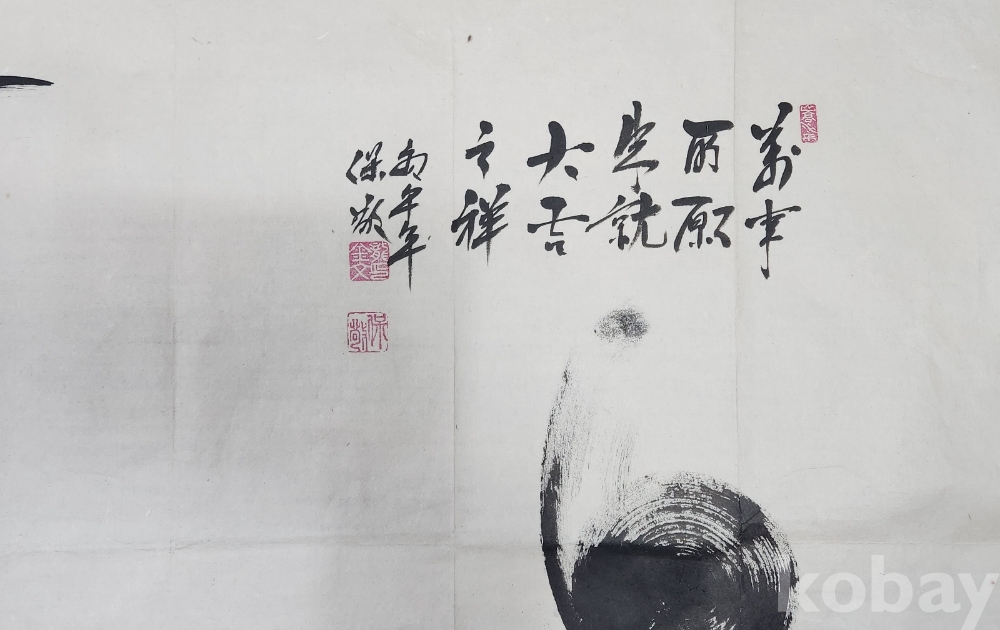 萬事
所願
成就
大吉
之祥
丙午年
保敬
保敬
kobay